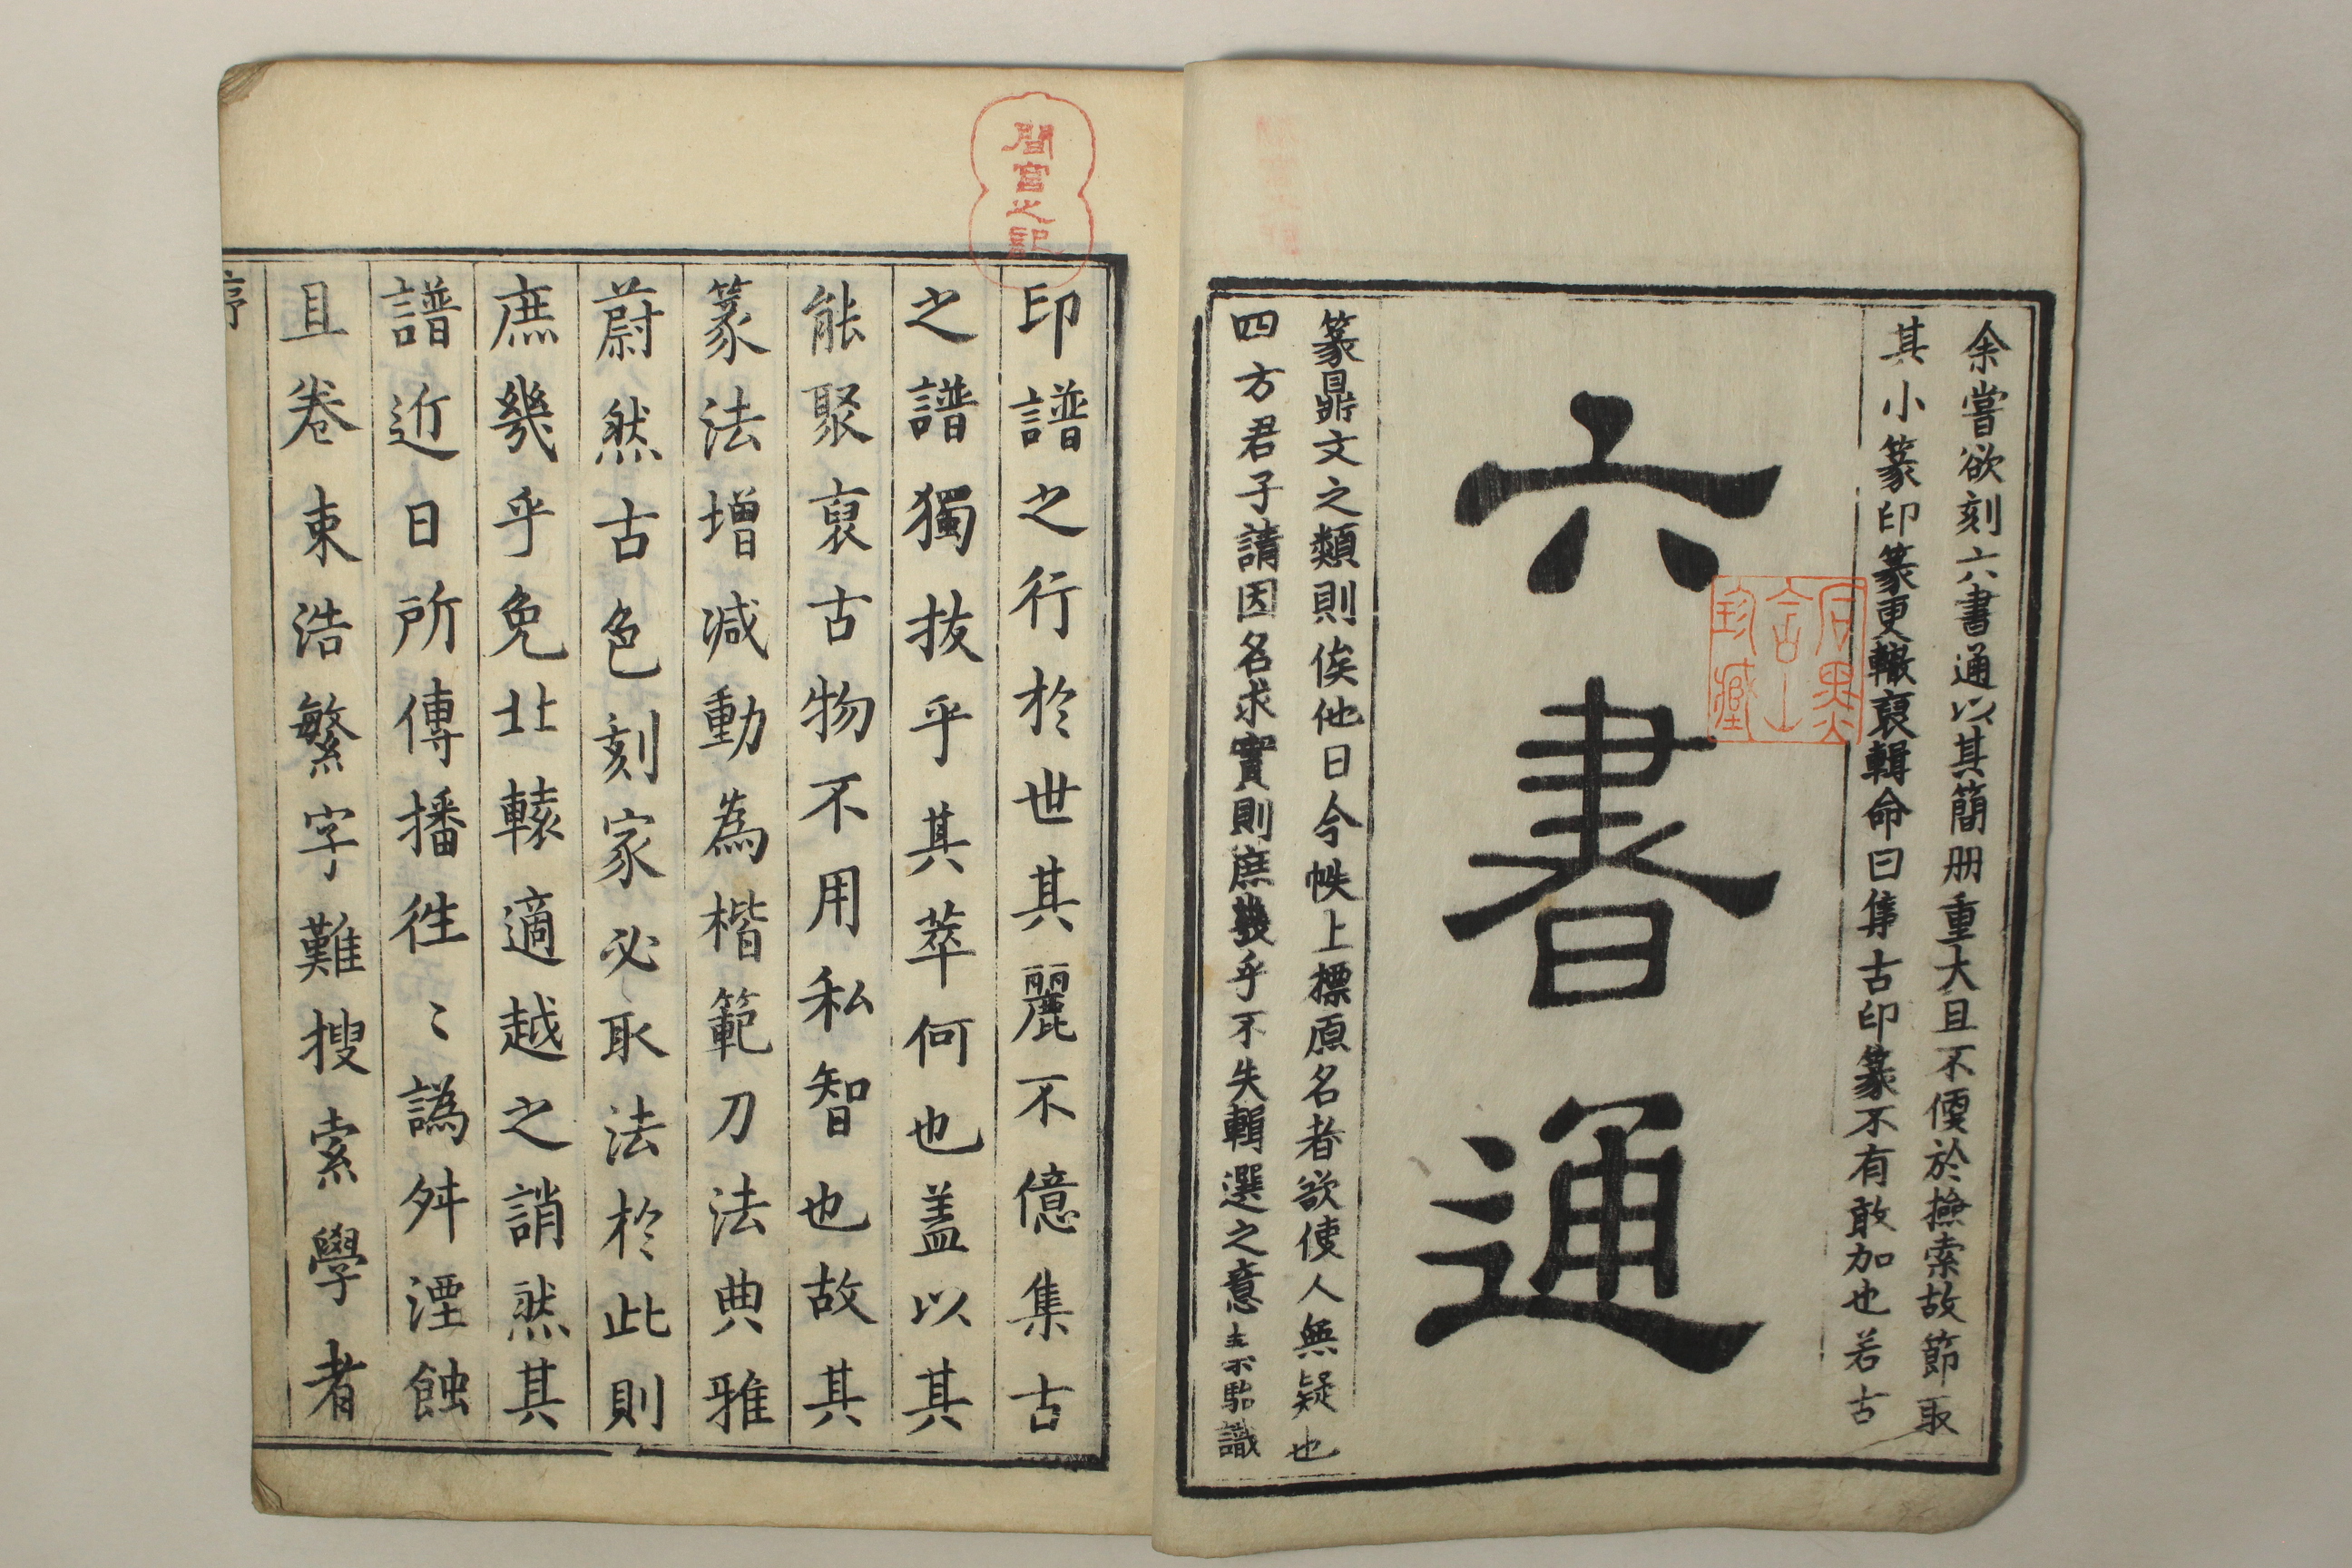 余嘗欲刻六書通以其簡册重大且不便於撿索故節取
其小篆印篆更轍裒輯命曰集古印篆不有敢加也若古
六書通
篆鼎文之類則俟他日今帙上標原名者欲使人無疑也
四方君子請因名求實則庶幾乎不失輯選之意
識
間宮之記
印譜之行於世其麗不億集古
之譜獨拔乎其萃何也盖以其
能聚裒古物不用私智也故其
篆法增減動為楷範刀法典雅
蔚然古色刻家必取法於此則
庶幾乎免北轅適越之誚然其
譜近日所傳播徃〻譌舛湮蝕
且卷束浩繁字難搜索學者
序